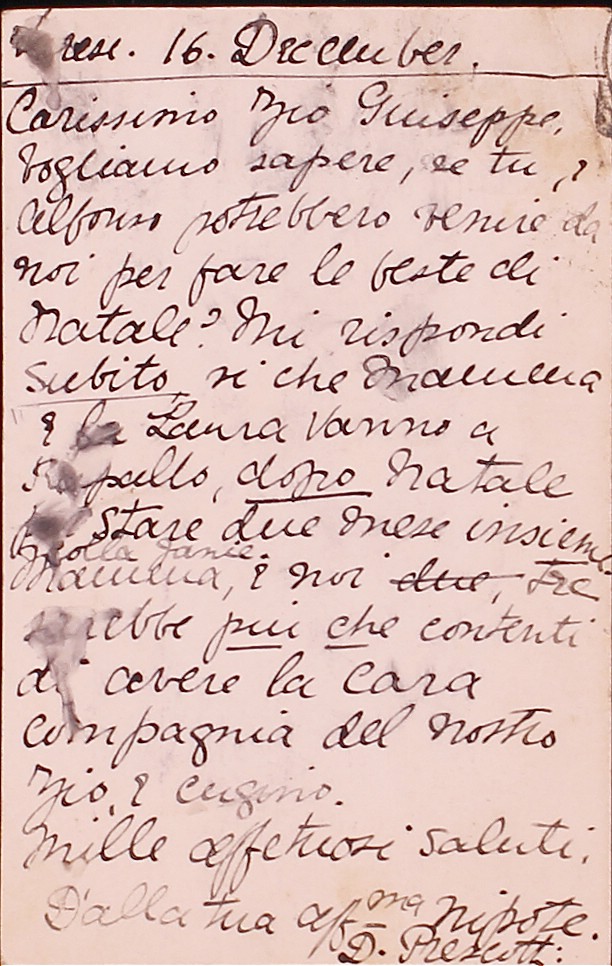 16. December.
Carissimo Zio Giuseppe,
Vogliamo sapere, se tu, e
Alfonso potrebbero venire da
noi per fare le feste di
Natale? Mi rispondi
subito, si che Mamma
e la Laura vanno a
Rapallo, dopo Natale
stare due mese insieme.
colla Janie.
Mamma, e noi due, tre
sarebbe piu che contenti
di avere la cara
compagnia del nostro
Zio, e cugino.
Mille affetuosi saluti.
Dalla tua aff ma nipote.
D. Prescott.